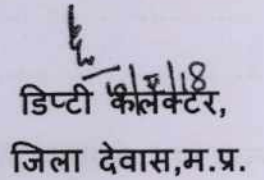 डिप्टी कलेक्टर,
जिला देवास,म.प्र.